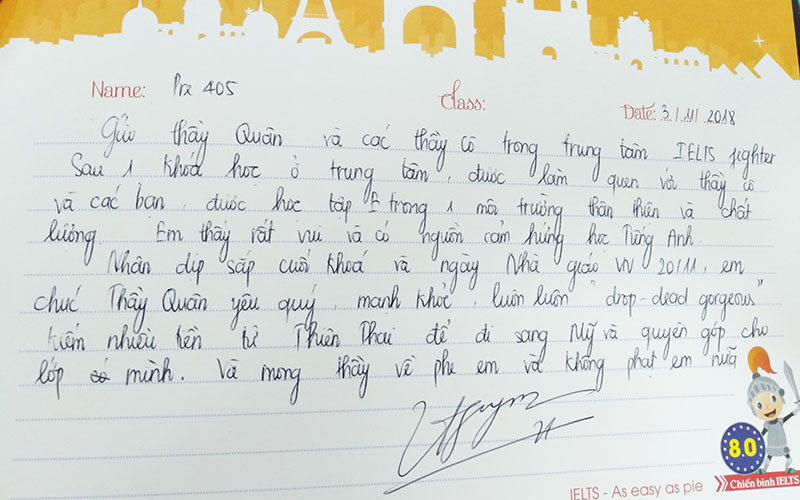 Name: Pre 405 Class: Date: 3/11/2018
Gửi thầy Quân và các thầy cô trong trung tâm IELTS fighter
Sau 1 khoá học ở trung tâm, được làm quen với thầy cô
và các bạn, được học tập E trong 1 môi trường thân thiện và chất
lượng. Em thấy rất vui và có nguồn cảm hứng học Tiếng Anh.
Nhân dịp sắp cuối khoá và ngày Nhà giáo VN 20/11, em
chúc Thầy Quân yêu quý, mạnh khoẻ, luôn luôn "drop-dead gorgeous"
kiếm nhiều tiền từ Thiên Thai để đi sang Mỹ và quyên góp cho
lớp mình. Và mong thầy về phe em và không phạt em nữa
8.0
Chiến binh IELTS
IELTS - As easy as pie